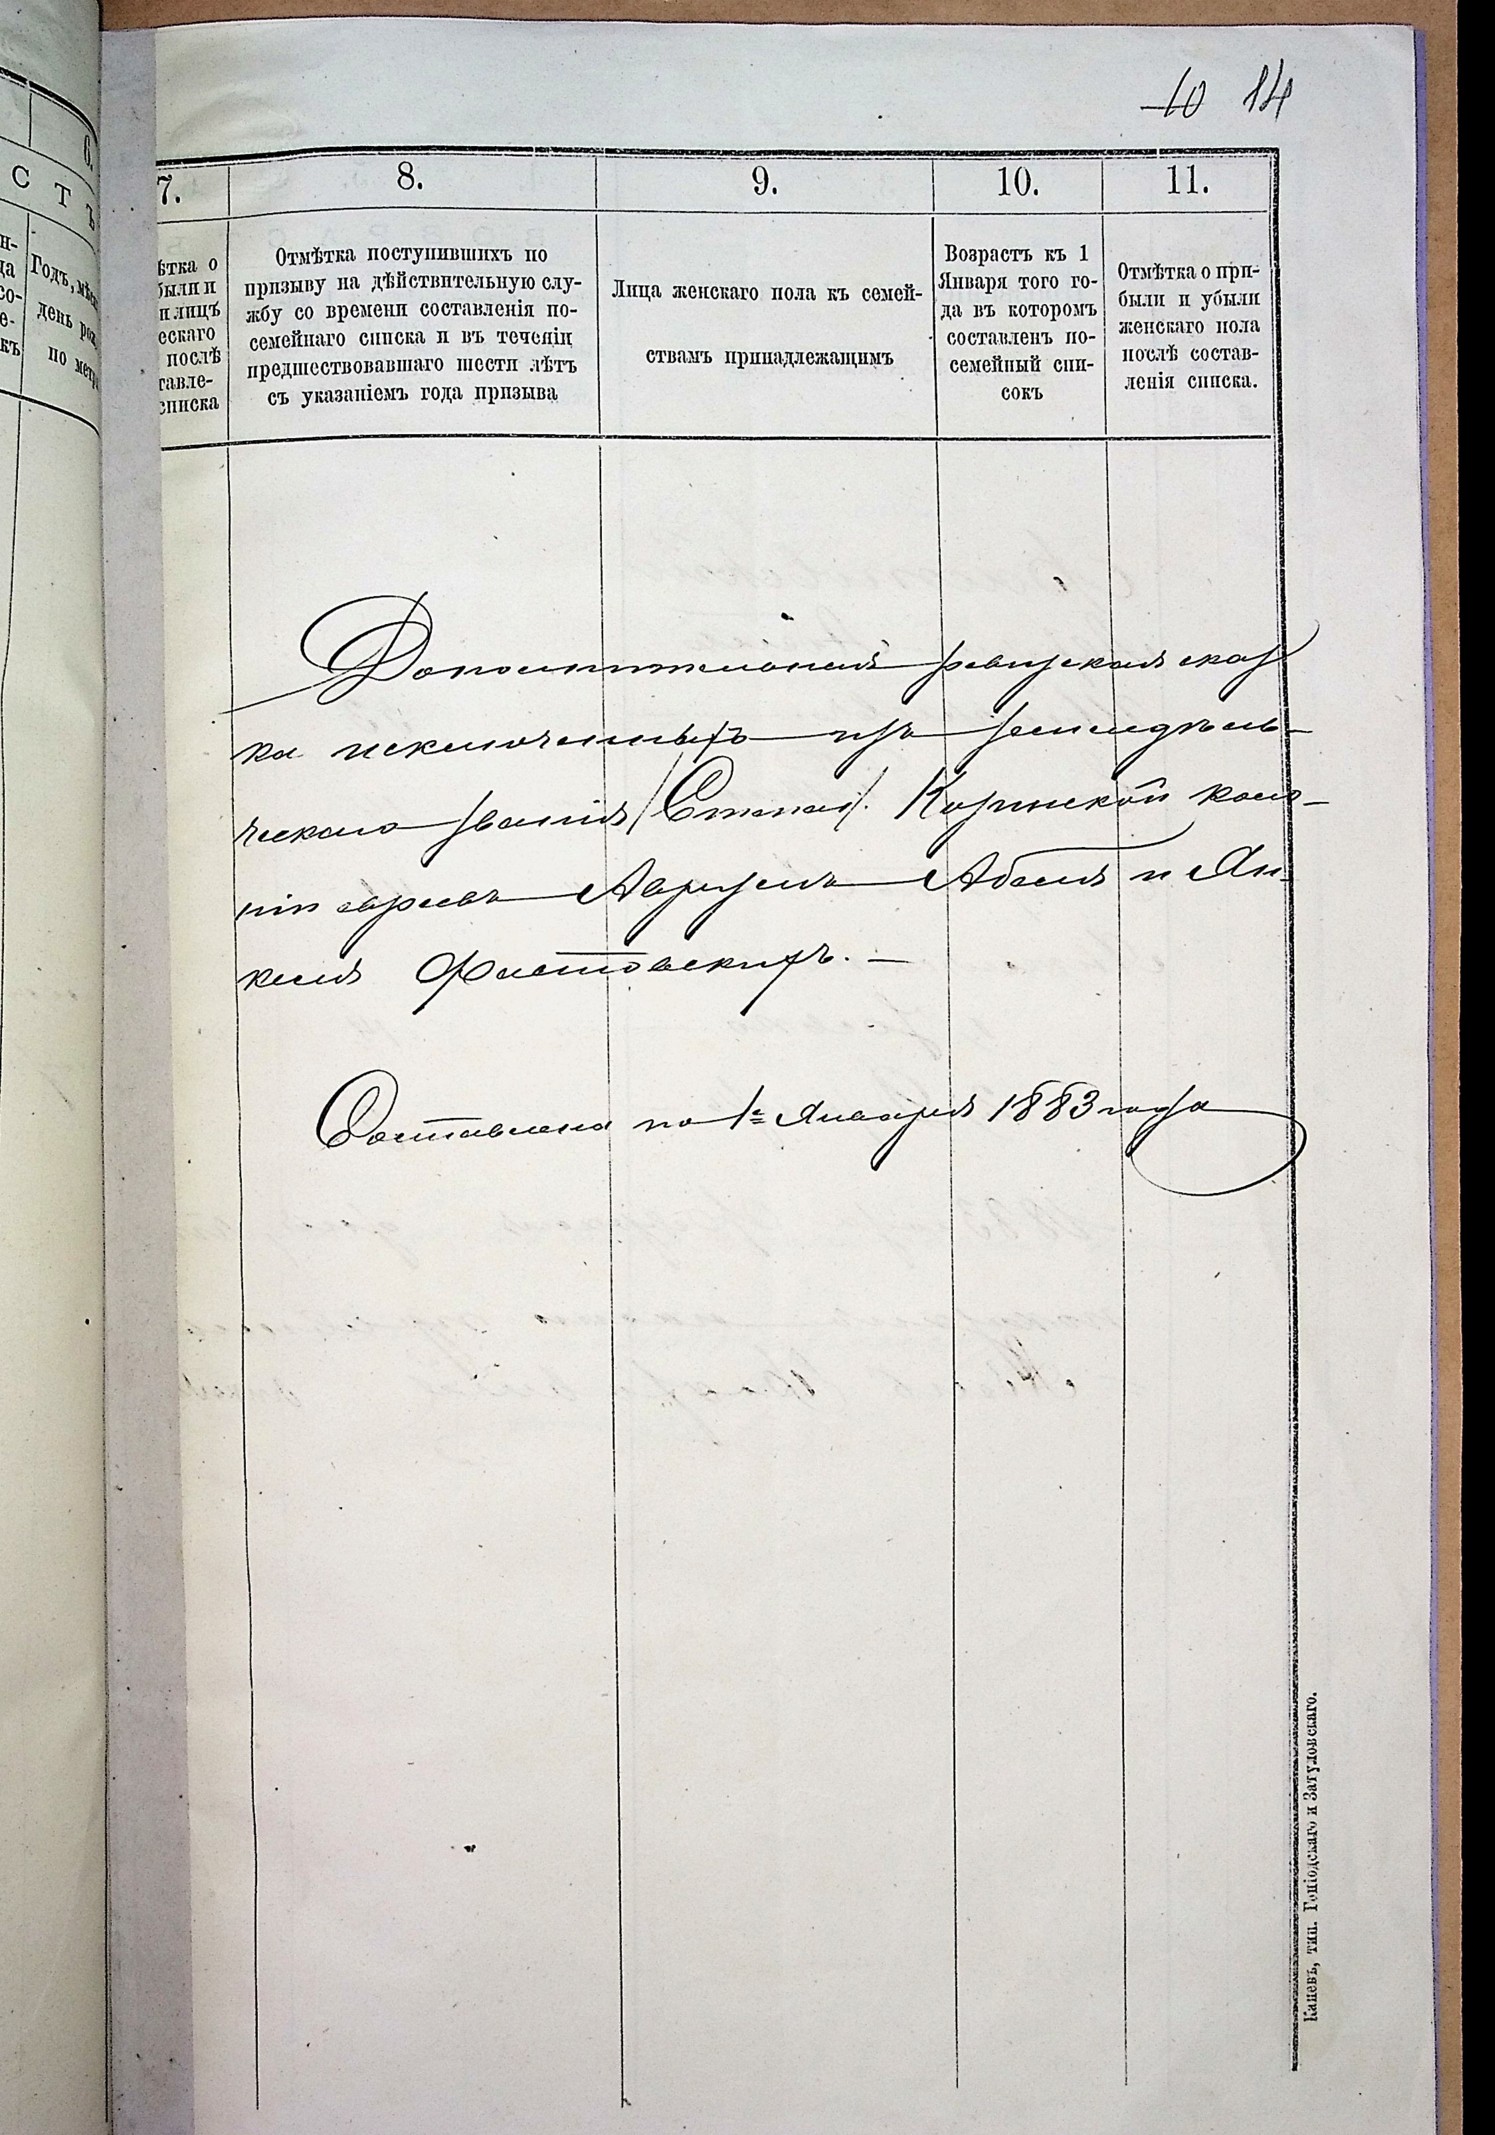 10 14
6.
СТЪ
Годъ, мѣся
день рож
по метр
7.
8.
9.
10.
11.
ѣтка о
были и
и лицъ
ескаго
послѣ
тавле-
списка
Отмѣтка поступившихъ по
призыву на дѣйствительную слу-
жбу со времени составленія по-
семейнаго списка и въ теченіи
предшествовавшаго шести лѣтъ
съ указаніемъ года призыва
Лица женскаго пола къ семей-
ствамъ принадлежащимъ
Возрастъ къ 1
Января того го-
да въ которомъ
составленъ по-
семейный спи-
сокъ
Отмѣтка о при-
были и убыли
женскаго пола
послѣ состав-
ленія списка.
Дополнительная ревизская сказ
ка исключенныхъ изъ земледѣль-
ческаго званія Козинской коло-
ніи евреевъ Аврумъ Абеля и Ян-
келя Фастовскихъ.—
Составлена по 1е Января 1883 года
Каневъ, тип. Гоніодскаго и Затуловскаго.